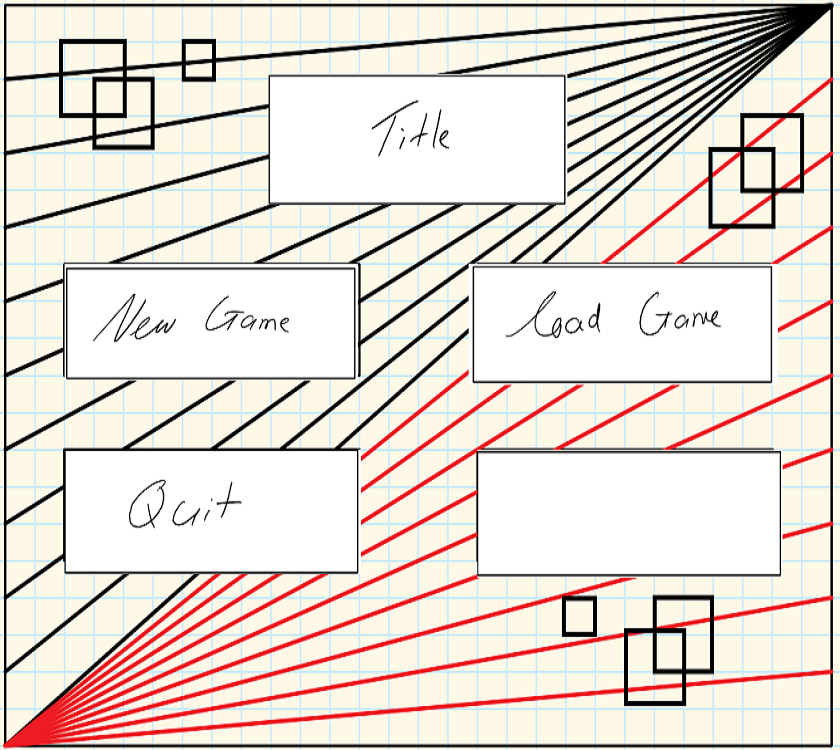 Title
New Game
Load Game
Quit